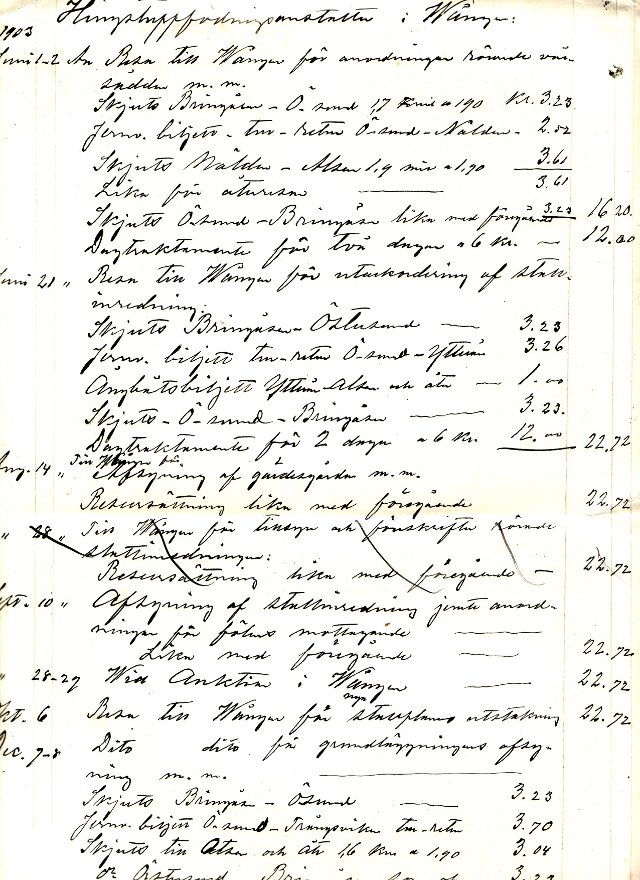 Hingstuppfödningsanstalten i Wången:
1903
Juni 1-2 An Resa till Wången för anordningar rörande vår-
sådden m. m.
Skjuts Bringåsen - Ö-sund 1,7 mil a 1.90 Kr. 3.23
Jernv. biljett - tur-retur Ö-sund - Nälden - 2.52
Skjuts Nälden - Alsen 1,9 mil a 1,90 3.61
Lika för återresan 3.61
Skjuts Ö-sund - Bringåsen lika med föregående 3.23 16 20.
Dagtraktamente för två dagar a 6 kr. — 12.00
Juni 21 " Resa till Wången för utackordering af stall-
inredning.
Skjuts Bringåsen - Östersund — 3.23
Jernv. biljett tur-retur Ö-sund - Ytterån 3.26
Ångbåtsbiljett Ytterån - Alsen och åter — 1.00
Skjuts - Ö-sund - Bringåsen 3.23.
Dagtraktamente för 2 dagar a 6 kr. 12.00 22.72
Aug. 14 " Till Wången för
Afsyning af gärdesgårdar m. m.
Reseersättning lika med föregående 22.72
" 28 " Till Wången för tillsyn och föreskrifter rörande
stallinredningen:
Reseersättning lika med föregående — 22.72
Sept. 10 " Afsyning af stallinredning jemte anord-
ningar för fölens mottagande
Lika med föregående — 22.72
" 28-29 Wid Auktion i Wången — 22.72
Okt. 6 Resa till Wången för nya stallplanens utstakning 22.72
Dec. 7-8 Dito dito för grundläggningens afsy-
ning m. m.
Skjuts Bringåsen - Ösund — 3.23
Jernv. biljett Ö-sund - Trångsviken tur-retur 3.70
Skjuts till Alsen och åter 1,6 a 1,90 3.04
Östersund